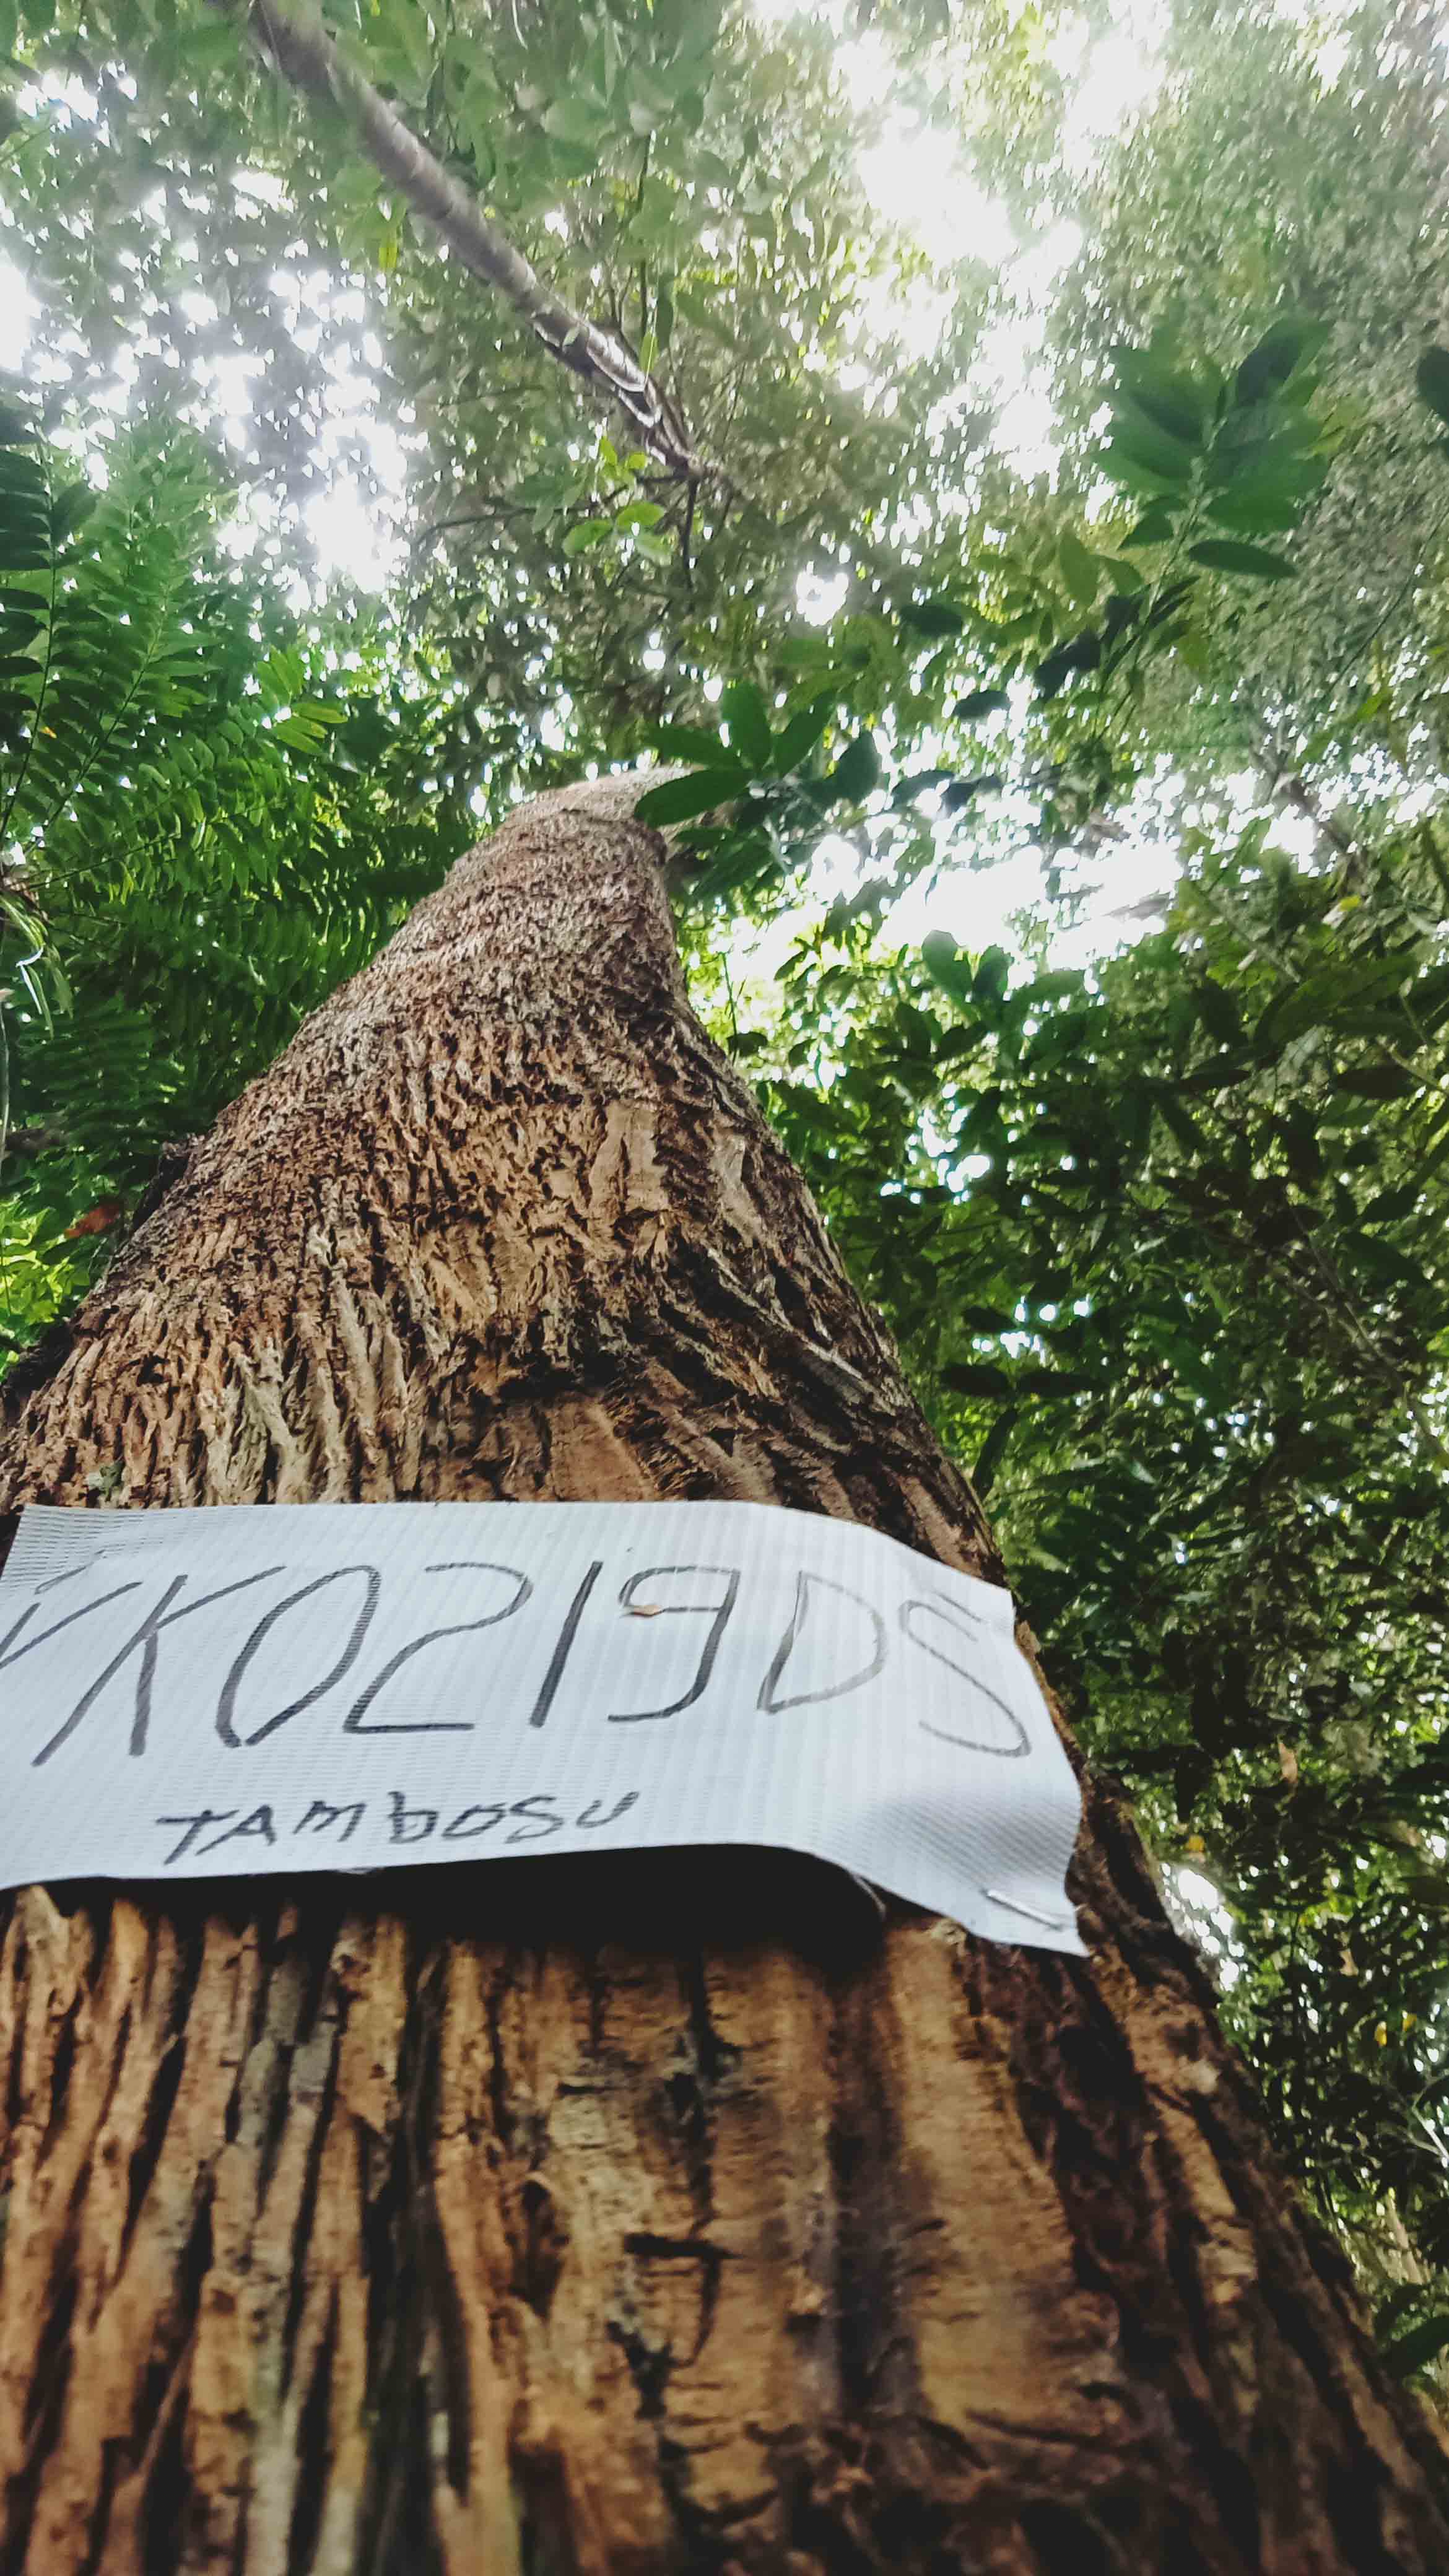 YK0219DS
TAmbosu